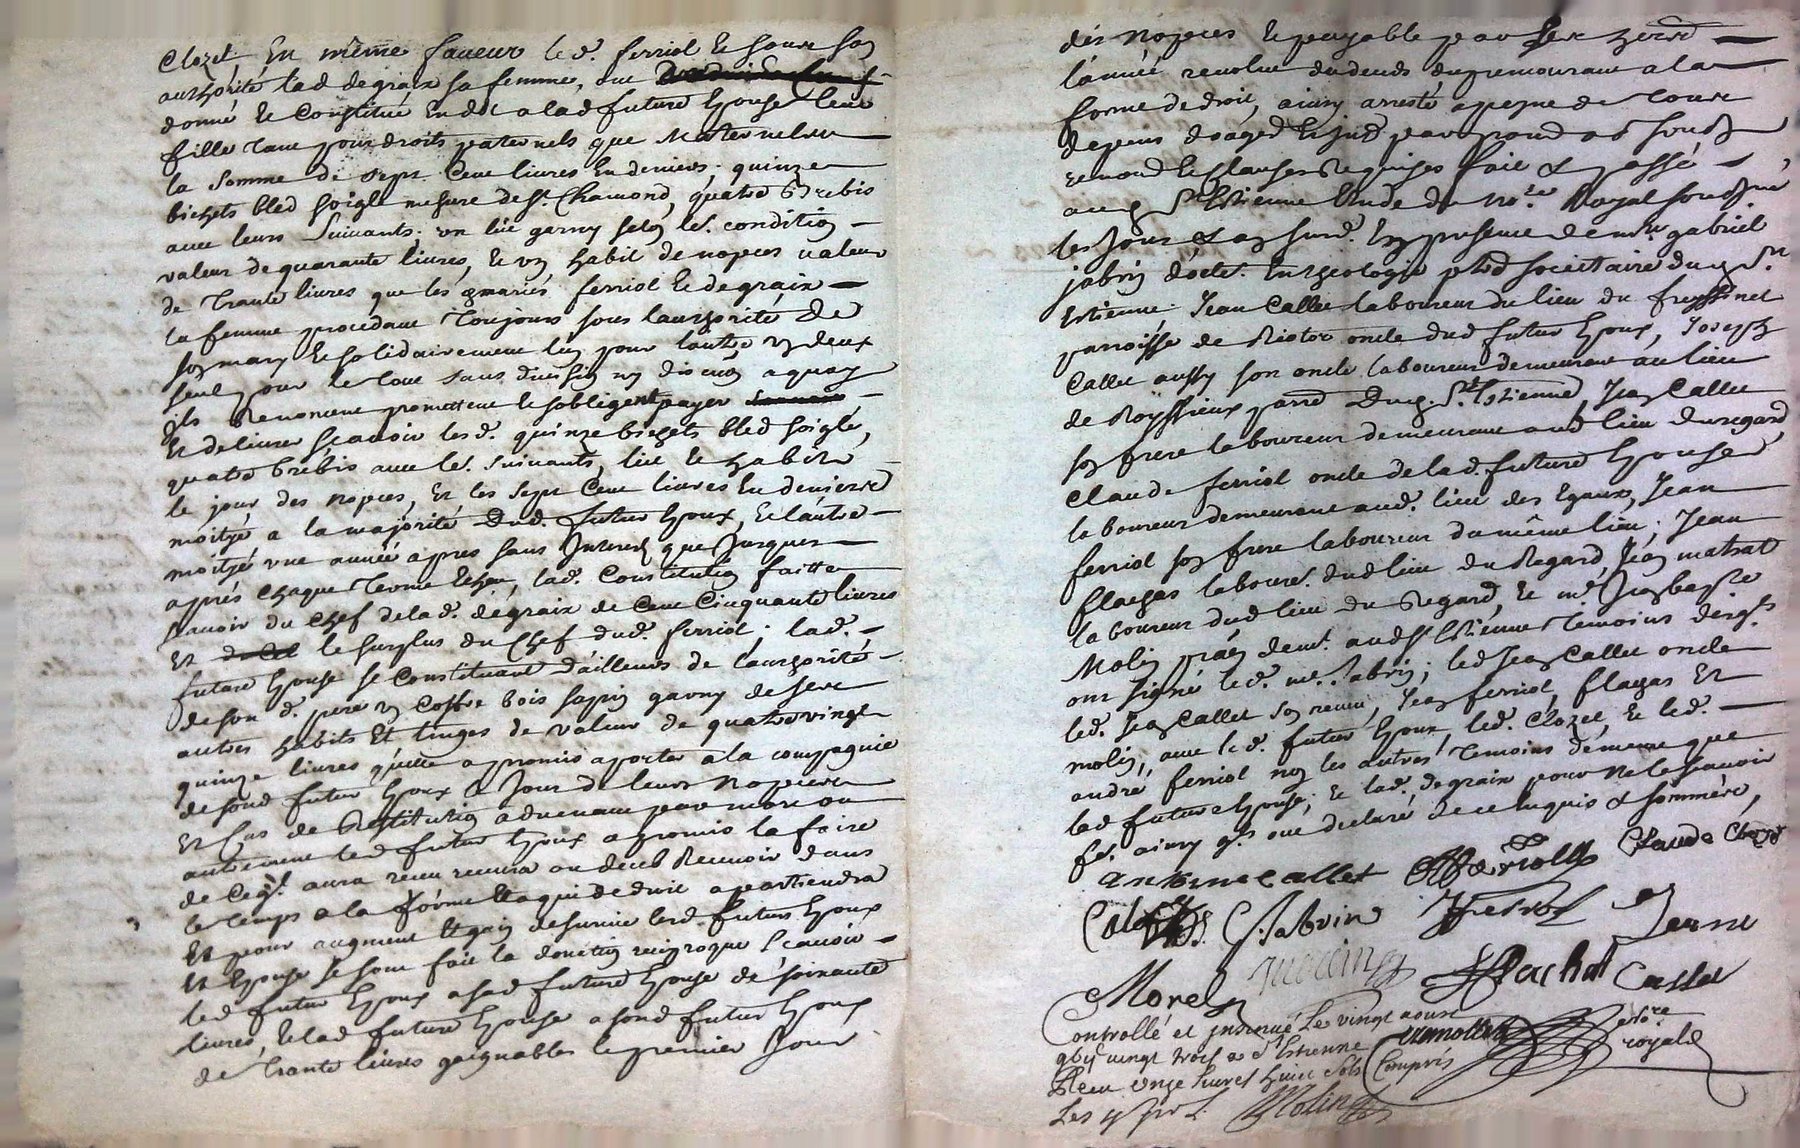 Clozel En même faveur led. ferriol Et sous son
authorité lad degraix sa femme, ont
donné Et Constitué En dot a lad future Epouse leur
fille tant pour droits paternels que Maternels
la Somme de sept Cent livres En deniers, quinze
bichets bled soigle mesure de St Chamond, quatre Brebis
avec leurs Suivants, un lit garny selon les. condition
valeur de quarante livres, Et un habit de nopces valeur
de trante livres que les mariés ferriol Et degraix
la femme procedant toujours sous lauthorité de
son mary Et solidairement lun pour lautre un deux
seul pour le tout sans division ny discution a quoy
ils Renoncent promettent Et sobligent payer
Et delivrer sçavoir lesd. quinze bichets bled soigle,
quatre brebis avec les. suivants, lit Et habit
le jour des nopces, Et les sept Cent livres En deniers
moitye a la majorité dud. futur Epoux, Et lautre
moitye une année apres sans Interest que Jusques
après chaque terme Echeu, lad. Constitution faitte
sçavoir du chef de lad. degraix de Cent Cinquante livres
Et le surplus du Chef dud. ferriol; lad.
future Epouse se Constituant d'ailleurs de lauthorité
de son d. pere un Coffre bois sapin garny de ses
autres habits Et linges de valeur de quatre vingt
quinze livres quelle a promis aporter a la compagnie
de sond futur Epoux le Jour de leurs nopces
Et Cas de Restitution advenant par mort ou
autrement led futur Epoux a promis la faire
de Ce quil aura receu recevra ou deub Recevoir dans
le temps a la forme Et a qui de droit apartiendra
Et pour augment Et gain de survie lesd. futurs Epoux
Et Epouse se sont fait la donation reciproque Sçavoir
led futur Epoux a sad future Epouse de soixante
livres, Et lad future Epouse a sond futur Epoux
de trante livres gaignables le premier Jour
des nopces Et payable par
lannée revolue du deceds du premourant a la
forme de droit, ainsy arresté a peyne de tous
depens
renond Et Clauses Requises fait & passé
St Etienne Etude du no.re Royal soub.né
les Jour & an susd. En presence de m.re gabriel
jabrin doct. En theologie societaire dud St
Etienne, Jean Callet laboureur du lieu du freyssinet
parroisse de Riotor oncle dud futur Epoux, Joseph
Callet aussy son oncle laboureur demeurant au lieu
de Royssieux St Etienne, Jean Callet
son frere laboureur demeurant aud lieu du regard
Claude ferriol oncle de lad. future Epouse
laboureur demeurant aud. lieu des Egaux, Jean
ferriol son frere laboureur du même lieu; Jean
flachas labour.r dud lieu du Regard, Jean mathat
laboureur dud lieu du Regard, Et m.e Jean bap.te
Molin demt. aud St Etienne temoins desquels
ont signé led. m.e Jabrin; led Jean Callet oncle
led. Jean Callet son neveu, Jean ferriol, flachas Et
molin, avec led. futur Epoux, led. Clozel, Et led.
andré ferriol non les autres temoins de meme que
lad future Epouse; Et lad. degraix pour ne le sçavoir
fe. ainsy qls ont declaré de ce Enquis & sommés,
antoine callet Claude Clozel
G. Jabrin ferriol Jeane
Morel molin flachat Callet
Controllé et insinué Le vingt aoust
vingt trois a St Etienne notre
Receu onze livres huict sols Compris royal
Les Molin